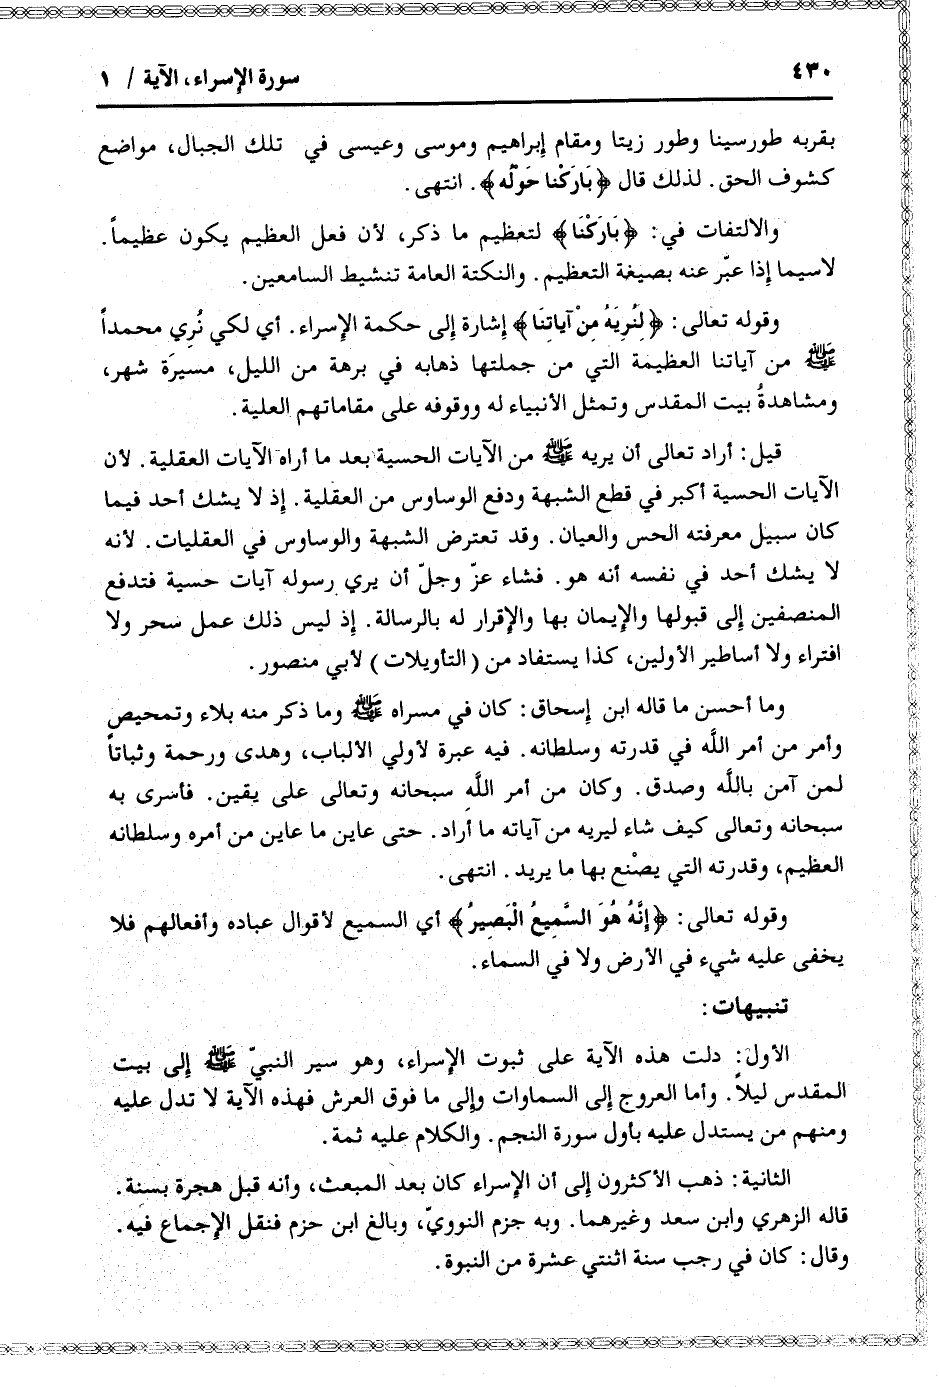 ٤٣٠
سورة الإسراء، الآية / ١
بقربه طورسينا وطور زيتا ومقام إبراهيم وموسى وعيسى في تلك الجبال، مواضع
كشوف الحق. لذلك قال ﴿بَارَكْنا حَوْلَه﴾. انتهى.
والالتفات في: ﴿بَارَكْنَا﴾ لتعظيم ما ذكر، لأن فعل العظيم يكون عظيماً.
لاسيما إذا عبّر عنه بصيغة التعظيم. والنكتة العامة تنشيط السامعين.
وقوله تعالى: ﴿لِنُرِيَهُ مِنْ آياتِنَا﴾ إشارة إلى حكمة الإسراء. أي لكي نُرِي محمداً
ﷺ من آياتنا العظيمة التي من جملتها ذهابه في برهة من الليل، مسيرَة شهر،
ومشاهدةُ بيت المقدس وتمثل الأنبياء له ووقوفه على مقاماتهم العلية.
قيل: أراد تعالى أن يريه ﷺ من الآيات الحسية بعد ما أراه الآيات العقلية. لأن
الآيات الحسية أكبر في قطع الشبهة ودفع الوساوس من العقلية. إذ لا يشك أحد فيما
كان سبيل معرفته الحس والعيان. وقد تعترض الشبهة والوساوس في العقليات. لأنه
لا يشك أحد في نفسه أنه هو. فشاء عزّ وجلّ أن يري رسوله آيات حسية فتدفع
المنصفين إلى قبولها والإيمان بها والإقرار له بالرسالة. إذ ليس ذلك عمل سحر ولا
افتراء ولا أساطير الأولين، كذا يستفاد من (التأويلات) لأبي منصور.
وما أحسن ما قاله ابن إسحاق: كان في مسراه ﷺ وما ذكر منه بلاء وتمحيص
وأمر من أمر اللَّه في قدرته وسلطانه. فيه عبرة لأولي الألباب، وهدى ورحمة وثباتاً
لمن آمن باللَّه وصدق. وكان من أمر اللَّهِ سبحانه وتعالى على يقين. فأسرى به
سبحانه وتعالى كيف شاء ليريه من آياته ما أراد. حتى عاين ما عاين من أمره وسلطانه
العظيم، وقدرته التي يصْنع بها ما يريد. انتهى.
وقوله تعالى: ﴿إِنَّهُ هُوَ السَّمِيعُ الْبَصِيرُ﴾ أي السميع لأقوال عباده وأفعالهم فلا
يخفى عليه شيء في الأرض ولا في السماء.
تنبيهات:
الأول: دلت هذه الآية على ثبوت الإسراء، وهو سير النبيّ ﷺ إلى بيت
المقدس ليلاً. وأما العروج إلى السماوات وإلى ما فوق العرش فهذه الآية لا تدل عليه
ومنهم من يستدل عليه بأول سورة النجم. والكلام عليه ثمة.
الثانية: ذهب الأكثرون إلى أن الإسراء كان بعد المبعث، وأنه قبل هجرة بسنة.
قاله الزهري وابن سعد وغيرهما. وبه جزم النوويّ، وبالغ ابن حزم فنقل الإجماع فيه.
وقال: كان في رجب سنة اثنتي عشرة من النبوة.